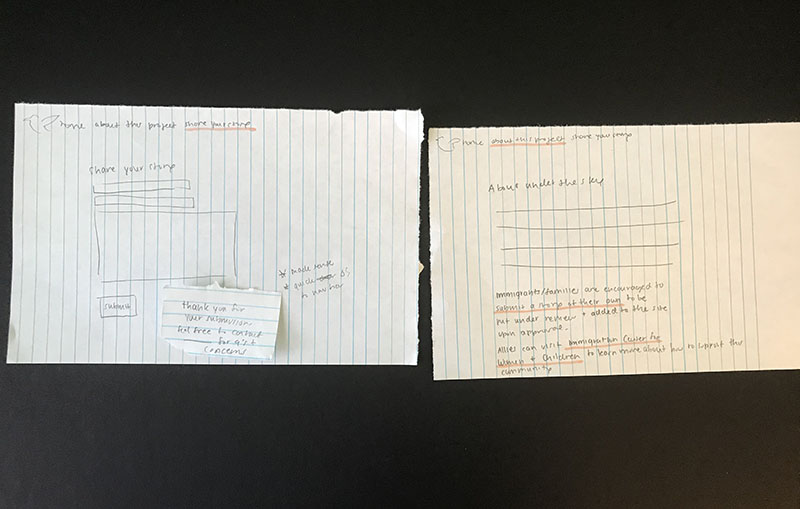 home about this project share your story
share your story
submit
thank you for
your submission
feel free to contact
for q's +
concerns
* made sense
* quick Δ's
to nav bar
home about this project share your story
About under the sky
Immigrants/families are encouraged to
submit a story of their own to be
put under review + added to the site
upon approval.
Allies can visit Immigration Center for
Women + Children to learn more about how to support this
community